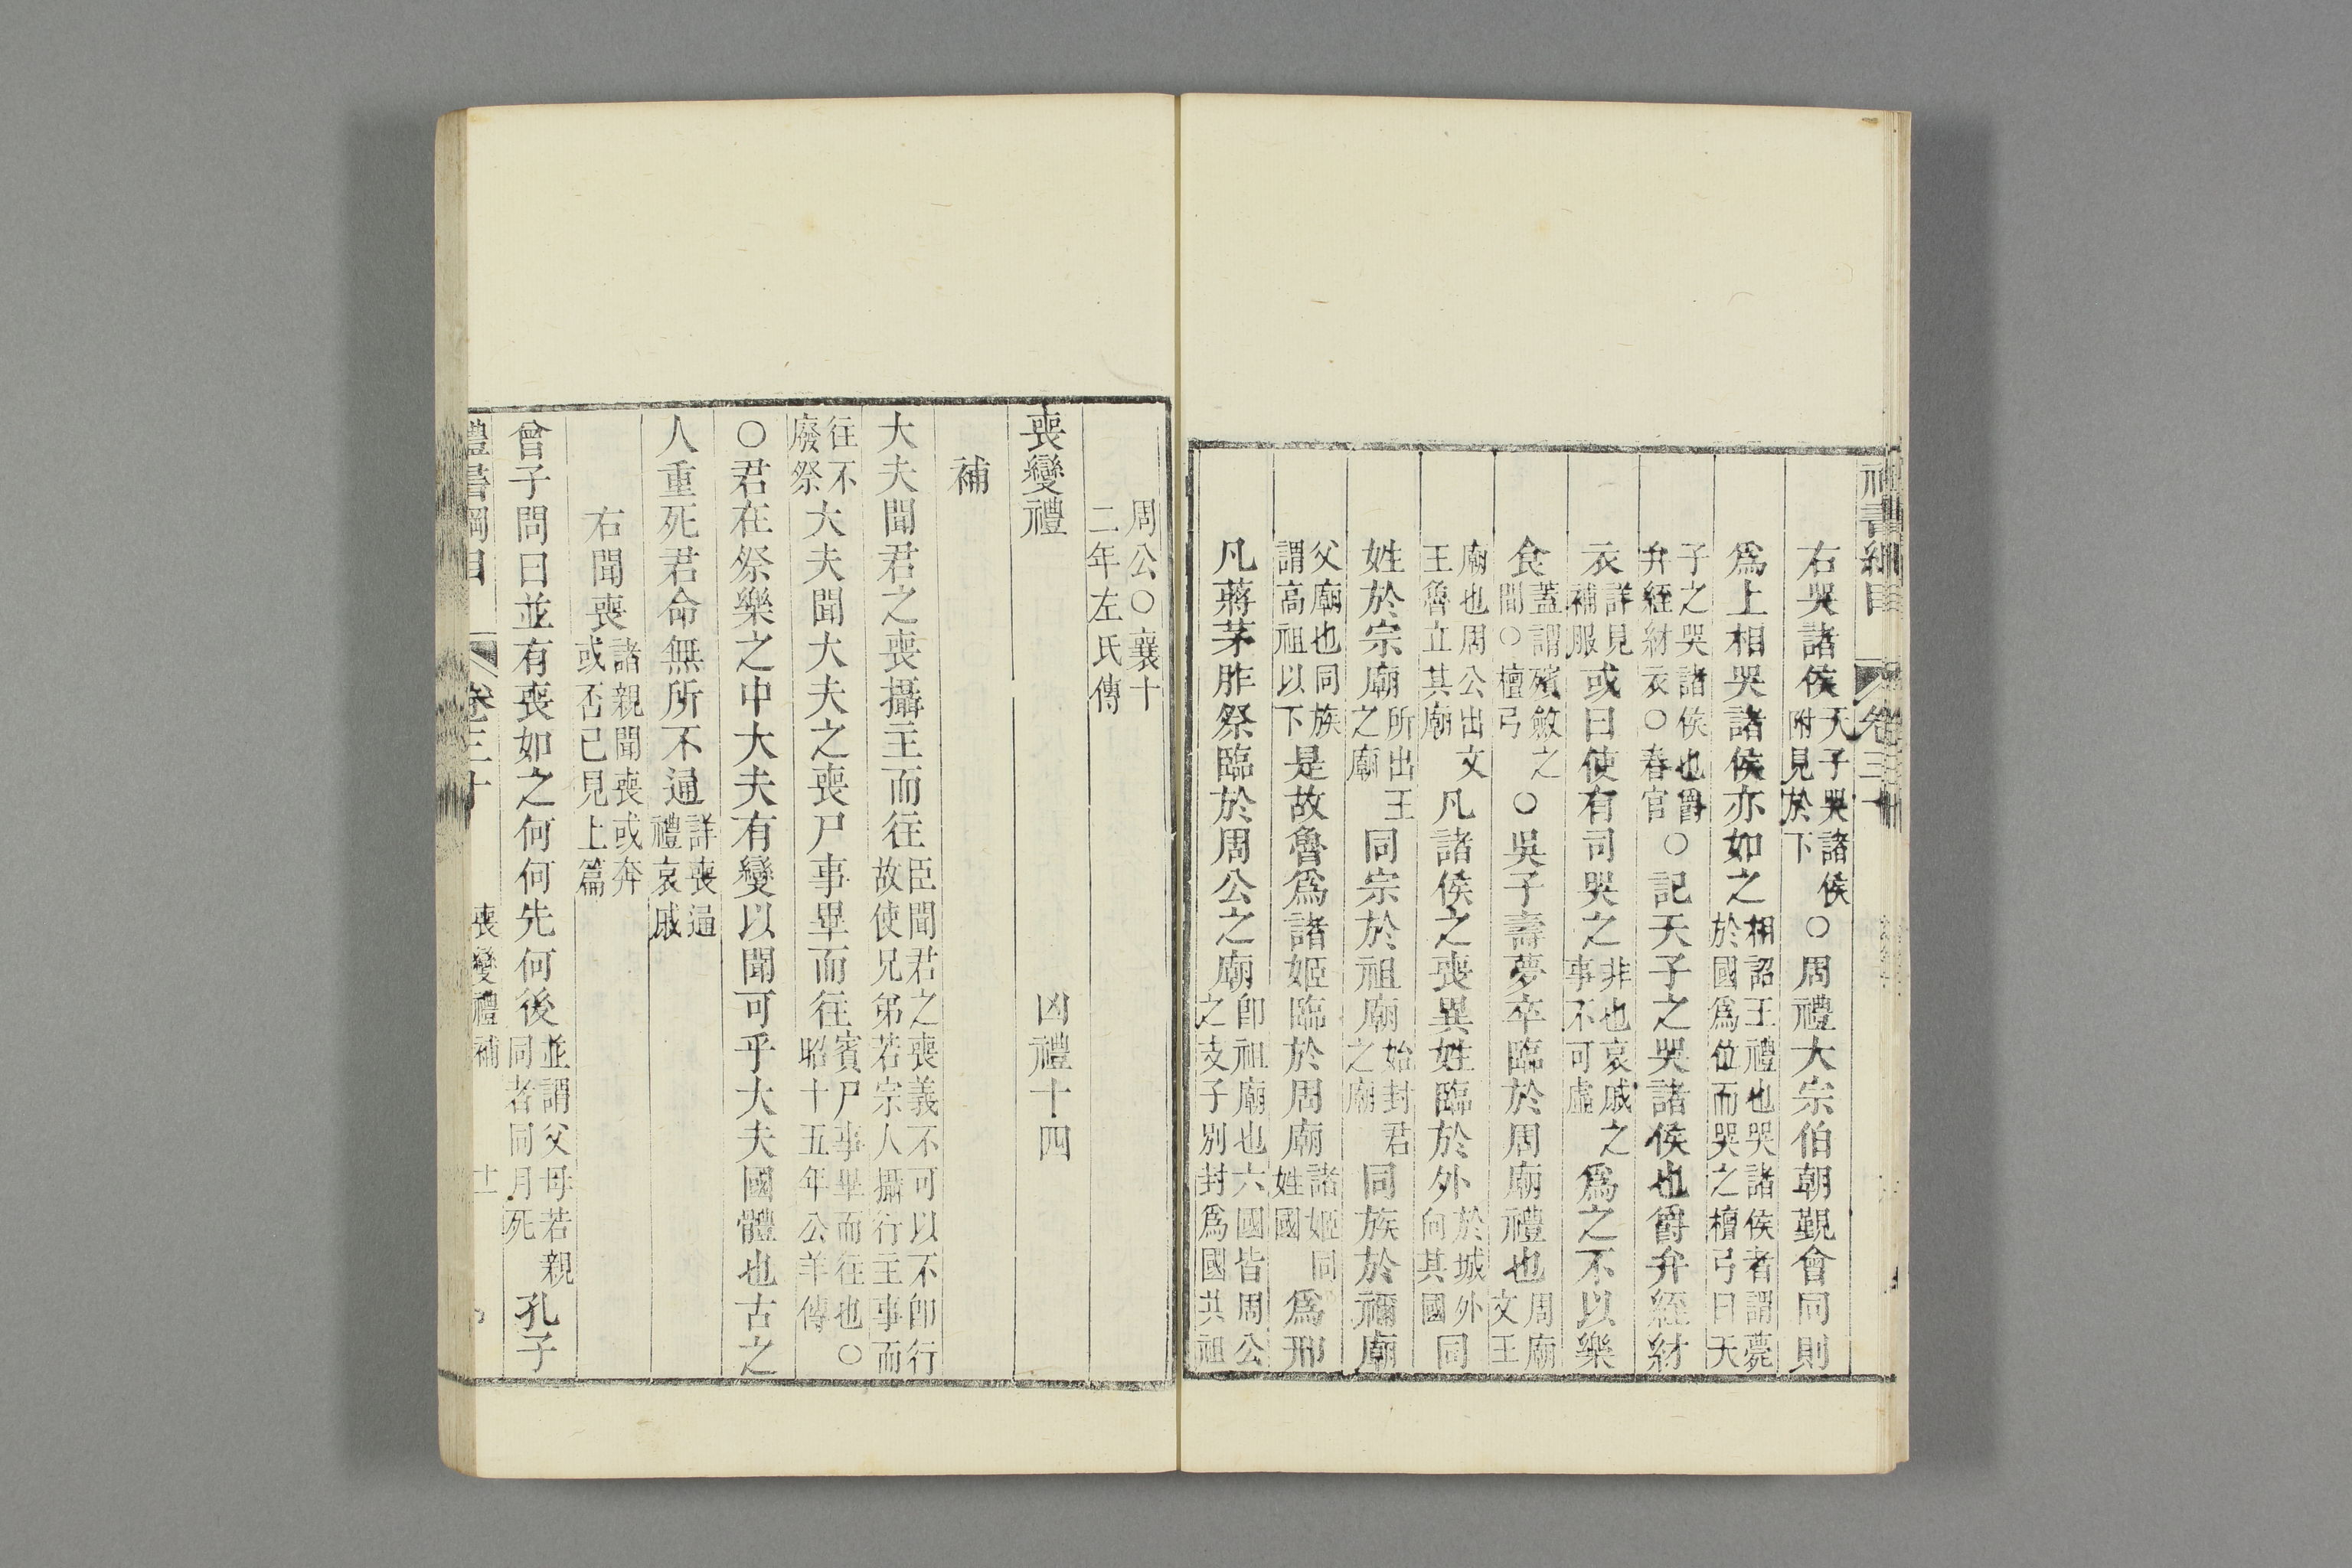 禮書綱目 卷三十
右哭諸侯天子哭諸侯附見於下○周禮大宗伯朝覲會同則
爲上相哭諸侯亦如之相詔王禮也哭諸侯者謂薨於國爲位而哭之檀弓曰天
子之哭諸侯也爵弁絰䊷衣○春官○記天子之哭諸侯也爵弁絰䊷
衣詳見補服或曰使有司哭之非也哀戚之事不可虛爲之不以樂
食蓋謂殯斂之間○檀弓○吳子壽夢卒臨於周廟禮也周廟文王
廟也周公出文王魯立其廟凡諸侯之喪異姓臨於外於城外向其國同
姓於宗廟所出王之廟同宗於祖廟始封君之廟同族於禰廟
父廟也同族謂高祖以下是故魯爲諸姬臨於周廟諸姬同姓國爲邢
凡蔣茅胙祭臨於周公之廟卽祖廟也六國皆周公之支子別封爲國共祖
周公○襄十二年左氏傳
喪變禮 凶禮十四
補
大夫聞君之喪攝主而往臣聞君之喪義不可以不卽行故使兄弟若宗人攝行主事而
往不廢祭大夫聞大夫之喪尸事畢而往賓尸事畢而往也○昭十五年公羊傳
○君在祭樂之中大夫有變以聞可乎大夫國體也古之
人重死君命無所不通詳喪通禮哀戚
右聞喪諸親聞喪或奔或否已見上篇
曾子問曰並有喪如之何何先何後並謂父母若親同者同月死孔子
禮書綱目 卷三十 喪變禮補 十一